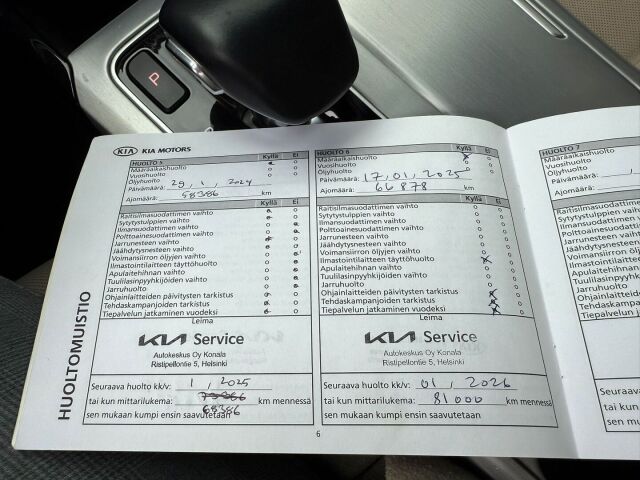 P
KIA KIA MOTORS
HUOLTO 5 Kyllä Ei
Määräaikaishuolto
Vuosihuolto
Öljyhuolto
Päivämäärä: 29, 1, 2024
Ajomäärä: 58386 km
Raitisilmasuodattimen vaihto
Sytytystulppien vaihto
Ilmansuodattimen vaihto
Polttoainesuodattimen vaihto
Jarrunesteen vaihto
Jäähdytysnesteen vaihto
Voimansiirron öljyjen vaihto
Ilmastointilaitteen täyttöhuolto
Apulaitehihnan vaihto
Tuulilasinpyyhkijöiden vaihto
Jarruhuolto
Ohjainlaitteiden päivitysten tarkistus
Tehdaskampanjoiden tarkistus
Tiepalvelun jatkaminen vuodeksi
Leima
KIA Service
Autokeskus Oy Konala
Ristipellontie 5, Helsinki
Seuraava huolto kk/v: 1, 2025
tai kun mittarilukema: km mennessä
68386
sen mukaan kumpi ensin saavutetaan
HUOLTOMUISTIO
6
HUOLTO 6 Kyllä Ei
Määräaikaishuolto
Vuosihuolto
Öljyhuolto
Päivämäärä: 17, 01, 2025
Ajomäärä: 66 878 km
Raitisilmasuodattimen vaihto
Sytytystulppien vaihto
Ilmansuodattimen vaihto
Polttoainesuodattimen vaihto
Jarrunesteen vaihto
Jäähdytysnesteen vaihto
Voimansiirron öljyjen vaihto
Ilmastointilaitteen täyttöhuolto
Apulaitehihnan vaihto
Tuulilasinpyyhkijöiden vaihto
Jarruhuolto
Ohjainlaitteiden päivitysten tarkistus
Tehdaskampanjoiden tarkistus
Tiepalvelun jatkaminen vuodeksi
Leima
KIA Service
Autokeskus Oy Konala
Ristipellontie 5, Helsinki
Seuraava huolto kk/v: 01, 2026
tai kun mittarilukema: 81 000 km mennessä
sen mukaan kumpi ensin saavutetaan
HUOLTO 7
Määräaikaishuolto
Vuosihuolto
Öljyhuolto
Päivämäärä:
Ajomäärä:
Raitisilmasuodattimen
Sytytystulppien vaihto
Ilmansuodattimen vaihto
Polttoainesuodattimen
Jarrunesteen vaihto
Jäähdytysnesteen
Voimansiirron öljyjen
Ilmastointilaitteen
Apulaitehihnan vaihto
Tuulilasinpyyhkijöiden
Jarruhuolto
Ohjainlaitteiden
Tehdaskampanjoiden
Tiepalvelun
Seuraava
tai kun
sen mu